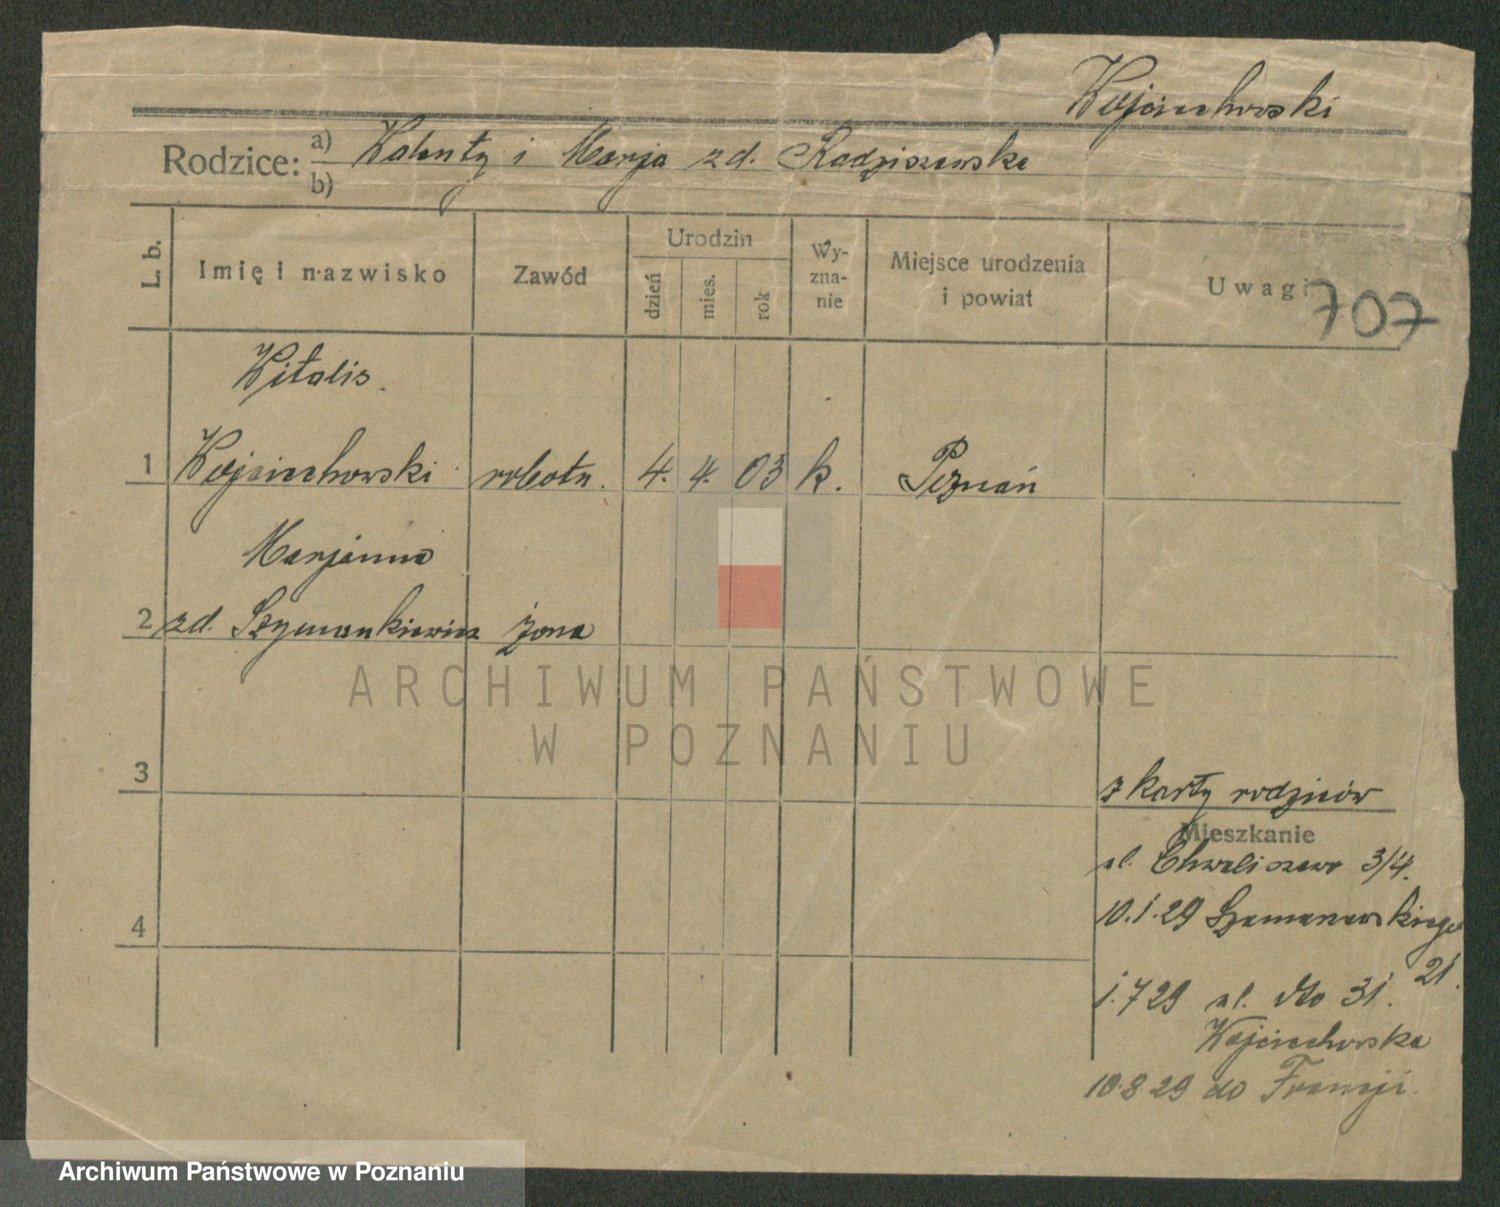 Wojciechowski
Rodzice: a) Walenty i Marja zd. Radziszewska
b)
L. b. Imię i nazwisko Zawód Urodzin dzień mies. rok Wy-zna-nie Miejsce urodzenia i powiat Uwagi 707
Witalis.
1 Wojciechowski robotn. 4. 4. 03 k. Poznań
Marjanna
2 zd. Szymankiewicz żona
ARCHIWUM PAŃSTWOWE
W POZNANIU
3
z karty rodziców
Mieszkanie
ul. Chwaliszewo 3/4.
4
10.1.29 Szamarzewskiego
21.
1.7 29 ul. dto 31.
Wojciechowska
10.8 29 do Francji.
Archiwum Państwowe w Poznaniu